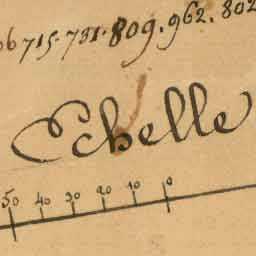 715. 731. 809. 962. 802
Echelle
50 40 30 20 10 0